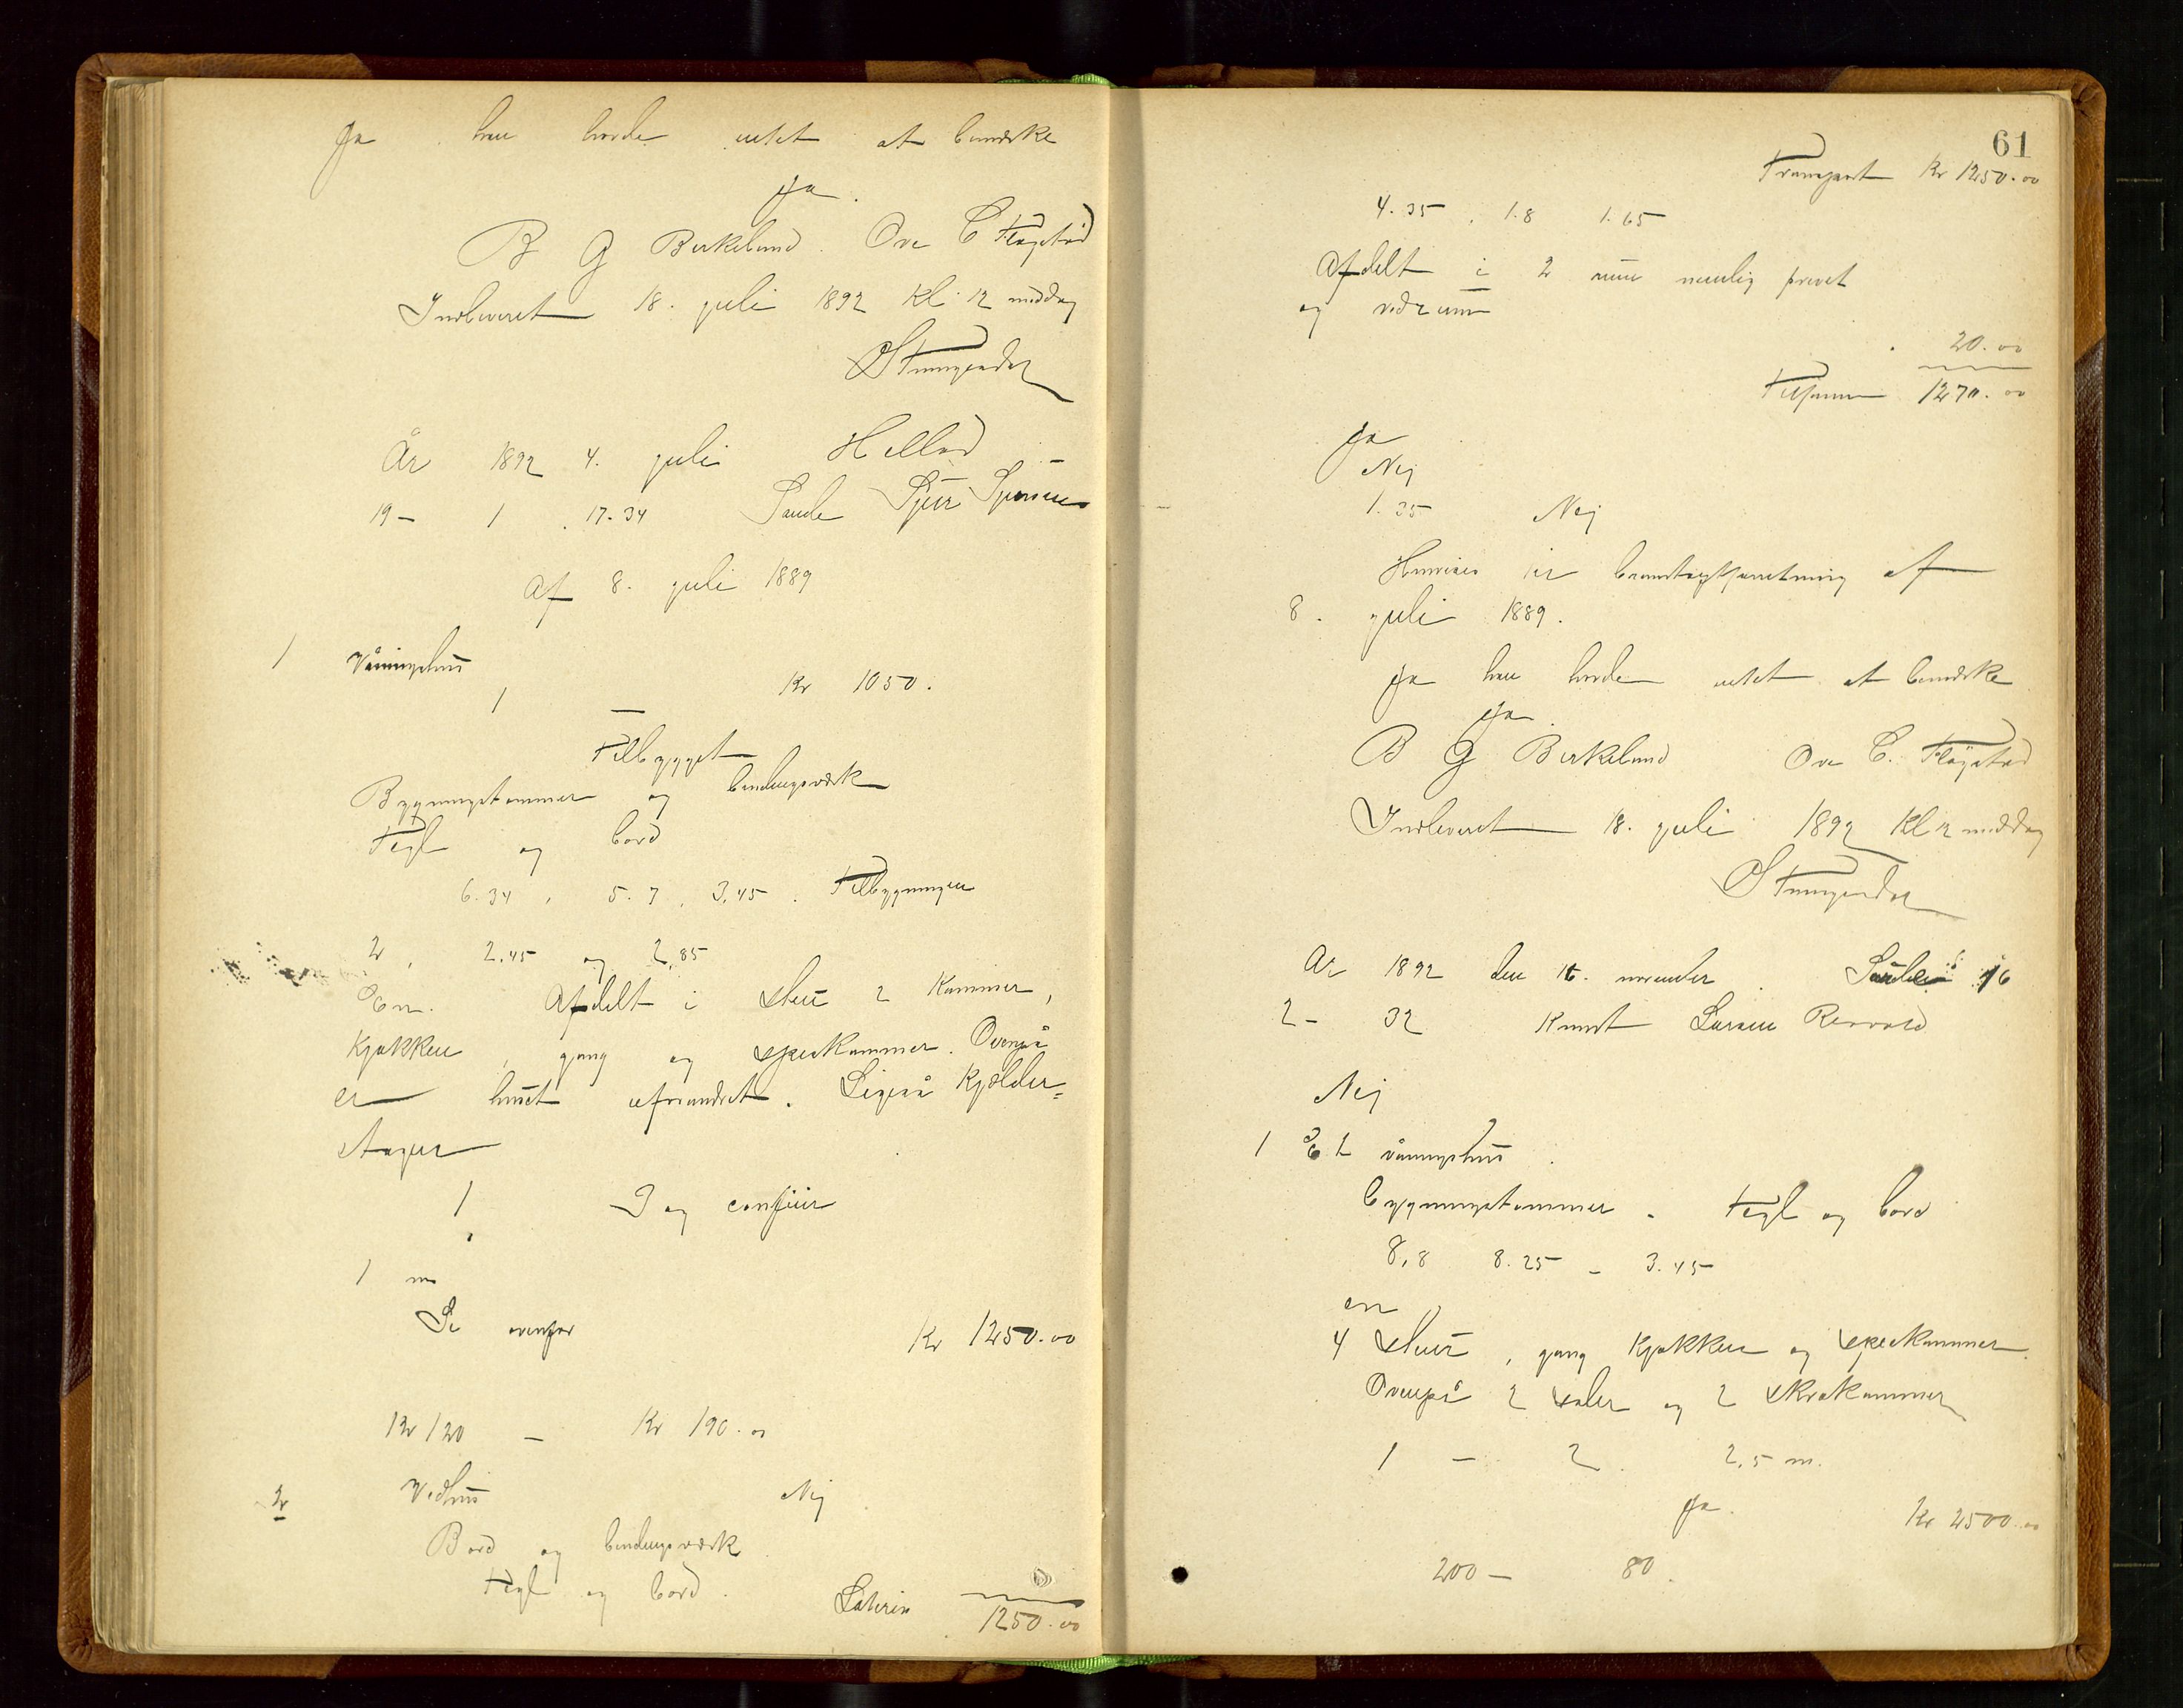 Ja han havde intet at bemærke
Ja.
B G Birkeland. Ove C Fløgstad
Indleveret 18. juli 1892 kl. 12 middag
År 1892 4. juli Helland
19 - 1. 17.34 Sande Sjur Sjursen
Af 8. juli 1889
1 Våningshus
1 — Kr 1050.
Tilbygget
Bygningstømmer og bindingsværk
Tegl og bord
6.34, 5.7, 3.45. Tilbygningen
2, 2.45 og 2,85
En. Afdelt i stue 2 kammer,
kjøkken, gang og spiskammer. Ovenpå
er huset uforandret. Ligeså kjælder=
etager
1 I og
1 m
Se ovenfor Kr 1250.00
Kr 120 — Kr 190.00
2 Vedhus Nej
Bord og bindingsværk
Tegl og bord.
Lateris 1250.00
61
Transport Kr 1250.00
4.35. 1.8 1.65
Afdelt i 2 rum nemlig privet
og vedrum
20.00
Tilsammen 1270.00
Ja
Nej
1.35 Nej
Henvises til branntaxtforretning af
8. juli 1889.
Ja han havde intet at bemærke
Ja.
B G Birkeland Ove C. Fløgstad
Indleveret 18. juli 1892 kl 12 middag
År 1892 den 16. november. 16
2 - 32 Knut Larsen
Nej
1 Et våningshus.
bygningstømmer. Tegl og bord
8,8 8.25 - 3.45
en
4 stuer, gang kjøkken og spiskammer.
Ovenpå 2 saler og 2 skråkammer
1 — 2. 2,5 m.
Ja. Kr 2500.00
200 — 80.